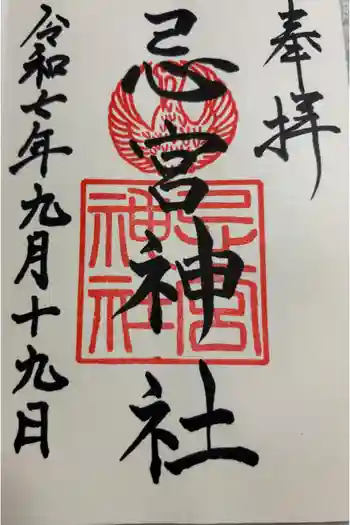 奉拝
忌宮神社
令和七年九月十九日
忌宮
神社